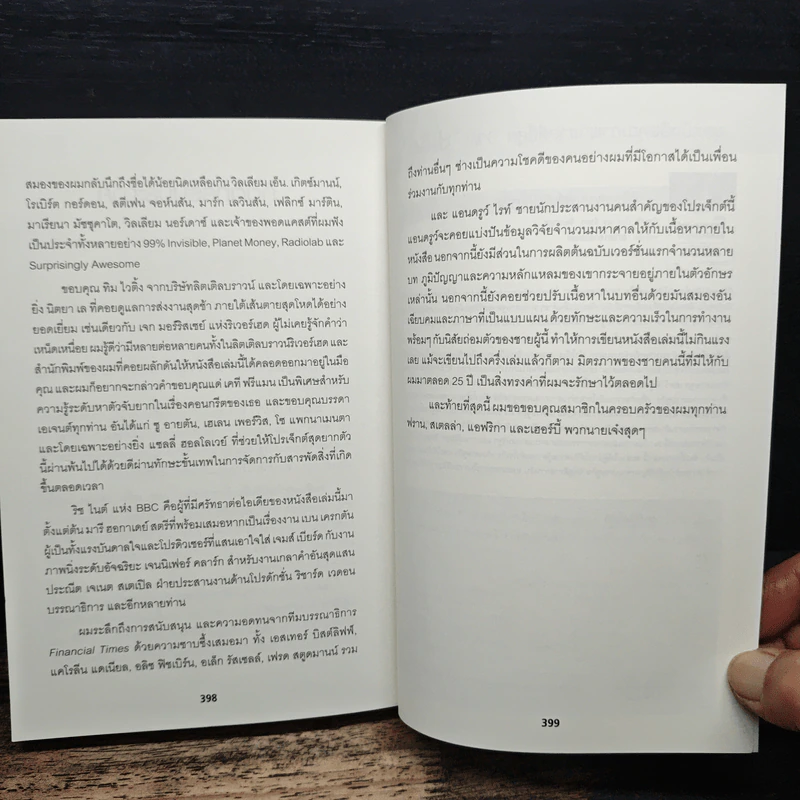 สมองของผมกลับนึกถึงชื่อได้น้อยนิดเหลือเกิน วิลเลียม เอ็น. เกิตซ์มานน์,
โรเบิร์ต กอร์ดอน, สตีเฟน จอห์นสัน, มาร์ก เลวินสัน, เฟลิกซ์ มาร์ติน,
มาเรียนา มัซซูคาโต, วิลเลียม นอร์เดาซ์ และเจ้าของพอดแคสต์ที่ผมฟัง
เป็นประจำทั้งหลายอย่าง 99% Invisible, Planet Money, Radiolab และ
Surprisingly Awesome
ขอบคุณ ทิม ไวติ้ง จากบริษัทลิตเติลบราวน์ และโดยเฉพาะอย่าง
ยิ่ง นิตยา เล ที่คอยดูแลการส่งงานสุดช้า ภายใต้เส้นตายสุดโหดได้อย่าง
ยอดเยี่ยม เช่นเดียวกับ เจก มอร์ริสเซย์ แห่งริเวอร์เฮด ผู้ไม่เคยรู้จักคำว่า
เหน็ดเหนื่อย ผมรู้ดีว่ามีหลายต่อหลายคนทั้งในลิตเติลบราวน์ริเวอร์เฮด และ
สำนักพิมพ์ของผมที่คอยผลักดันให้หนังสือเล่มนี้ได้คลอดออกมาอยู่ในมือ
คุณ และผมก็อยากจะกล่าวคำขอบคุณแด่ เคที ฟรีแมน เป็นพิเศษสำหรับ
ความรู้ระดับหาตัวจับยากในเรื่องคอนกรีตของเธอ และขอบคุณบรรดา
เอเจนต์ทุกท่าน อันได้แก่ ซู อายตัน, เฮเลน เพอร์วิส, โซ แพกนาเมนตา
และโดยเฉพาะอย่างยิ่ง แซลลี่ ฮอลโลเวย์ ที่ช่วยให้โปรเจ็กต์สุดยากตัว
นี้ผ่านพ้นไปได้ด้วยดีผ่านทักษะขั้นเทพในการจัดการกับสารพัดสิ่งที่เกิด
ขึ้นตลอดเวลา
ริช ไนต์ แห่ง BBC คือผู้ที่มีศรัทธาต่อไอเดียของหนังสือเล่มนี้มา
ตั้งแต่ต้น มารี ฮอกาเดย์ สตรีที่พร้อมเสมอหากเป็นเรื่องงาน เบน เครกตัน
ผู้เป็นทั้งแรงบันดาลใจและโปรดิวเซอร์ที่แสนเอาใจใส่ เจมส์ เบียร์ด กับงาน
ภาพนิ่งระดับอัจฉริยะ เจนนิเฟอร์ คลาร์ก สำหรับงานเกลาคำอันสุดแสน
ประณีต เจเนต สเตเปิล ฝ่ายประสานงานด้านโปรดักชั่น ริชาร์ด เวดอน
บรรณาธิการ และอีกหลายท่าน
ผมระลึกถึงการสนับสนุน และความอดทนจากทีมบรรณาธิการ
Financial Times ด้วยความซาบซึ้งเสมอมา ทั้ง เอสเทอร์ บิสต์ลิฟฟ์,
แคโรลีน แดเนียล, อลิซ ฟิชเบิร์น, อเล็ก รัสเซลล์, เฟรด สตูดมานน์ รวม
398
ถึงท่านอื่นๆ ช่างเป็นความโชคดีของคนอย่างผมที่มีโอกาสได้เป็นเพื่อน
ร่วมงานกับทุกท่าน
และ แอนดรูว์ ไรท์ ชายนักประสานงานคนสำคัญของโปรเจ็กต์นี้
แอนดรูว์จะคอยแบ่งปันข้อมูลวิจัยจำนวนมหาศาลให้กับเนื้อหาภายใน
หนังสือ นอกจากนี้ยังมีส่วนในการผลิตต้นฉบับเวอร์ชั่นแรกจำนวนหลาย
บท ภูมิปัญญาและความหลักแหลมของเขากระจายอยู่ภายในตัวอักษร
เหล่านั้น นอกจากนี้ยังคอยช่วยปรับเนื้อหาในบทอื่นด้วยมันสมองอัน
เฉียบคมและภาษาที่เป็นแบบแผน ด้วยทักษะและความเร็วในการทำงาน
พร้อมๆ กับนิสัยถ่อมตัวของชายผู้นี้ ทำให้การเขียนหนังสือเล่มนี้ไม่กินแรง
เลย แม้จะเขียนไปถึงครึ่งเล่มแล้วก็ตาม มิตรภาพของชายคนนี้ที่มีให้กับ
ผมมาตลอด 25 ปี เป็นสิ่งทรงค่าที่ผมจะรักษาไว้ตลอดไป
และท้ายที่สุดนี้ ผมขอขอบคุณสมาชิกในครอบครัวของผมทุกท่าน
ฟราน, สเตลล่า, แอฟริกา และเฮอร์บี้ พวกนายเจ๋งสุดๆ
399